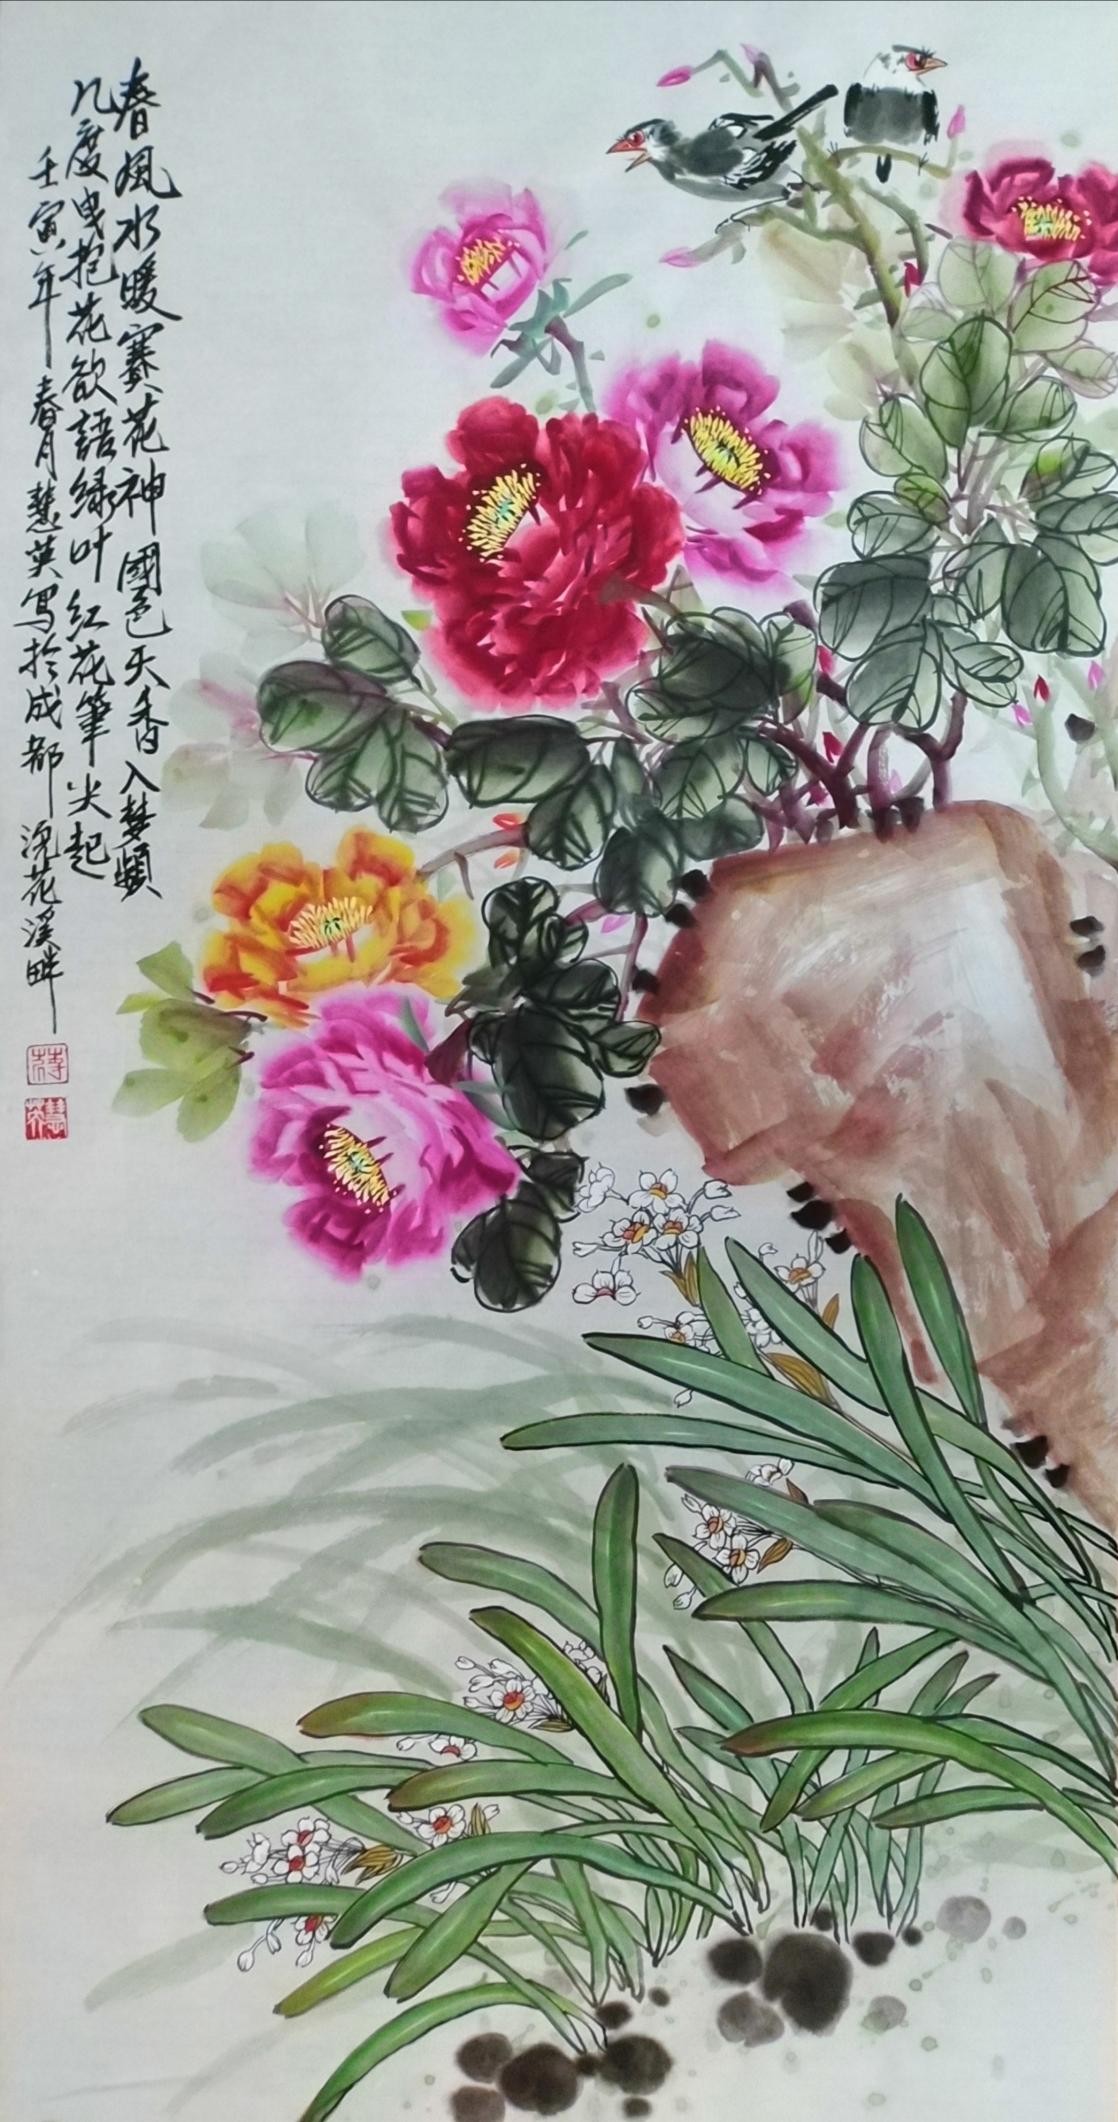 春風水暖賽花神 國色天香入夢頻
几度曳抱花欲語绿叶红花筆尖起
壬寅年春月慧英寫於成都浣花溪畔
慧英